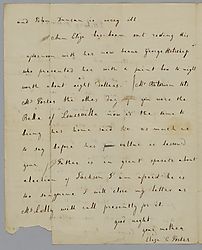 and John Duncan is very ill
Ann Eliza has been out riding this
afternoon with her new beau George
who presented her with a paint box to night
worth about eight dollars.
Mr Foster the other day you were the
Belle of Louisville now is the time to
being has home and too so much as
to say before his return is second
your Father is in great spirits about
election of Jackson I am afraid he is
too sanguine I will close my letter as
Mr will call presently for it.
good night
your mother
Eliza C Foster